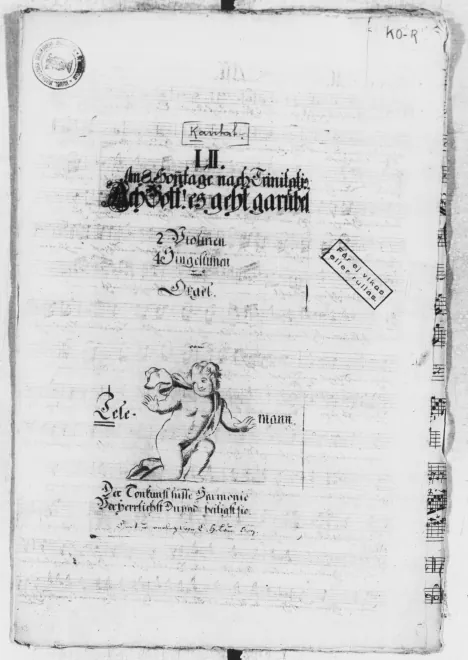 KO-R
Kantat.
LII.
Am 8. Sontage nach Trinitatis
Ach Gott! es geht gar übel
2 Violinen
4 Singestimen
Orgel.
Får ej vikas
eller rullas.
Tele- mann.
Der Tonkunst süsse Harmonie
Verherrlichst Du und heiligst sie.